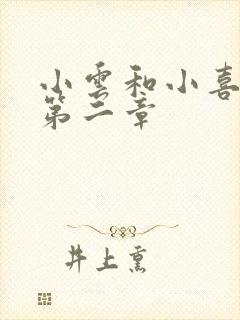 小雲和小喜
第二章
井上熏